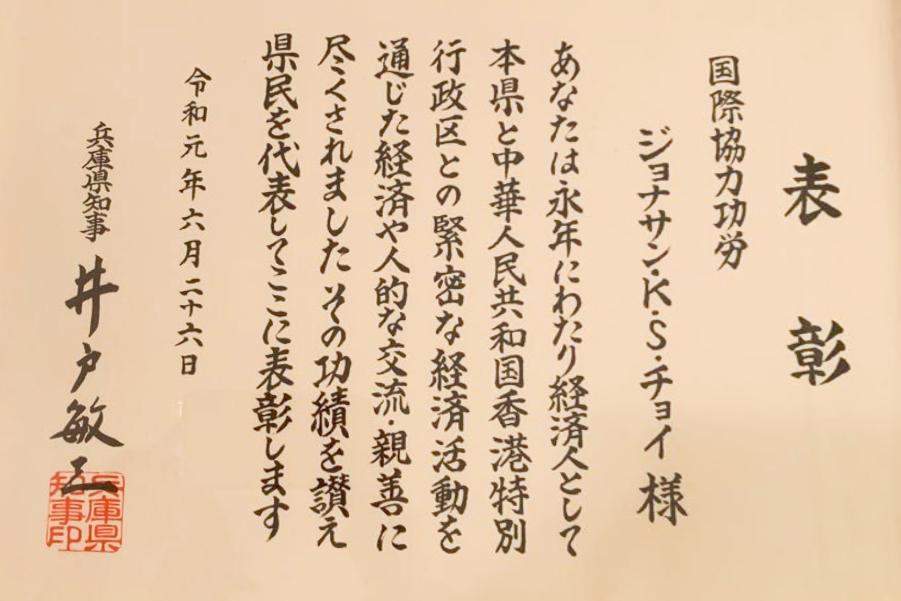 表彰
国際協力功労
ジョナサン・K・S・チョイ 様
あなたは永年にわたり経済人として
本県と中華人民共和国香港特別
行政区との緊密な経済活動を
通じた経済や人的な交流・親善に
尽くされました その功績を讃え
県民を代表してここに表彰します
令和元年六月二十六日
兵庫県知事 井戸敏三
兵庫県
知事印